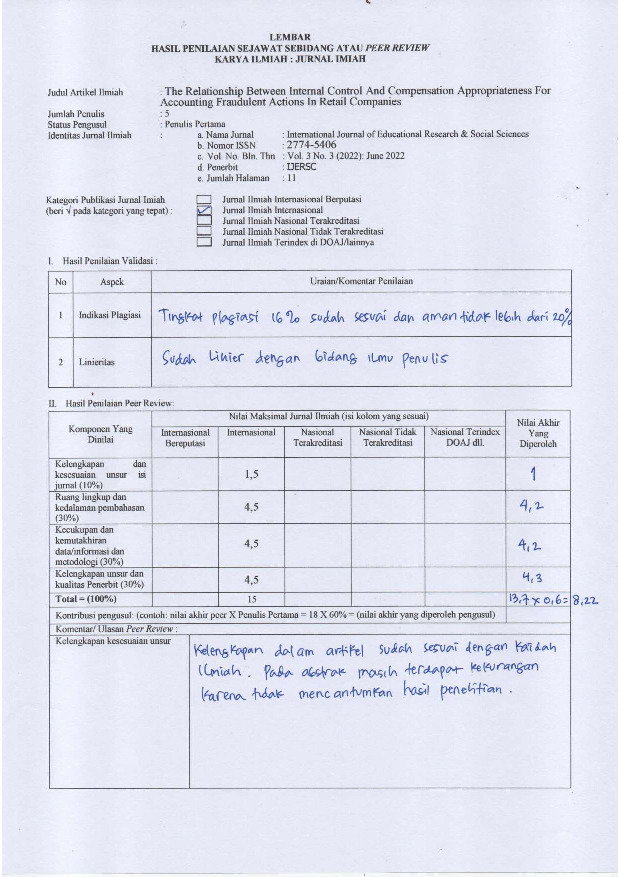 LEMBAR
HASIL PENILAIAN SEJAWAT SEBIDANG ATAU PEER REVIEW
KARYA ILMIAH : JURNAL IMIAH
Judul Artikel Ilmiah : The Relationship Between Internal Control And Compensation Appropriateness For
Accounting Fraudulent Actions In Retail Companies
Jumlah Penulis : 5
Status Pengusul : Penulis Pertama
Identitas Jurnal Ilmiah : a. Nama Jurnal : International Journal of Educational Research & Social Sciences
b. Nomor ISSN : 2774-5406
c. Vol. No. Bln. Thn : Vol. 3 No. 3 (2022): June 2022
d. Penerbit : IJERSC
e. Jumlah Halaman : 11
Kategori Publikasi Jurnal Imiah
(beri √ pada kategori yang tepat) :
Jurnal Ilmiah Internasional Berputasi
✓ Jurnal Ilmiah Internasional
Jurnal Ilmiah Nasional Terakreditasi
Jurnal Ilmiah Nasional Tidak Terakreditasi
Jurnal Ilmiah Terindex di DOAJ/lainnya
I. Hasil Penilaian Validasi :
No Aspek Uraian/Komentar Penilaian
1 Indikasi Plagiasi Tingkat plagiasi 16% sudah sesuai dan aman tidak lebih dari 20%
2 Linieritas Sudah Linier dengan bidang ilmu penulis
II. Hasil Penilaian Peer Review:
Komponen Yang
Dinilai
Nilai Maksimal Jurnal Ilmiah (isi kolom yang sesuai)
Internasional
Bereputasi
Internasional
Nasional
Terakreditasi
Nasional Tidak
Terakreditasi
Nasional Terindex
DOAJ dll.
Nilai Akhir
Yang
Diperoleh
Kelengkapan dan
kesesuaian unsur isi
jurnal (10%)
1,5
1
Ruang lingkup dan
kedalaman pembahasan
(30%)
4,5
4,2
Kecukupan dan
kemutakhiran
data/informasi dan
metodologi (30%)
4,5
4,2
Kelengkapan unsur dan
kualitas Penerbit (30%)
4,5
4,3
Total = (100%) 15 13,7 x 0,6 = 8,22
Kontribusi pengusul: (contoh: nilai akhir peer X Penulis Pertama = 18 X 60% = (nilai akhir yang diperoleh pengusul)
Komentar/ Ulasan Peer Review :
Kelengkapan kesesuaian unsur
Kelengkapan dalam artikel sudah sesuai dengan kaidah
Ilmiah. Pada abstrak masih terdapat kekurangan
karena tidak mencantumkan hasil penelitian.